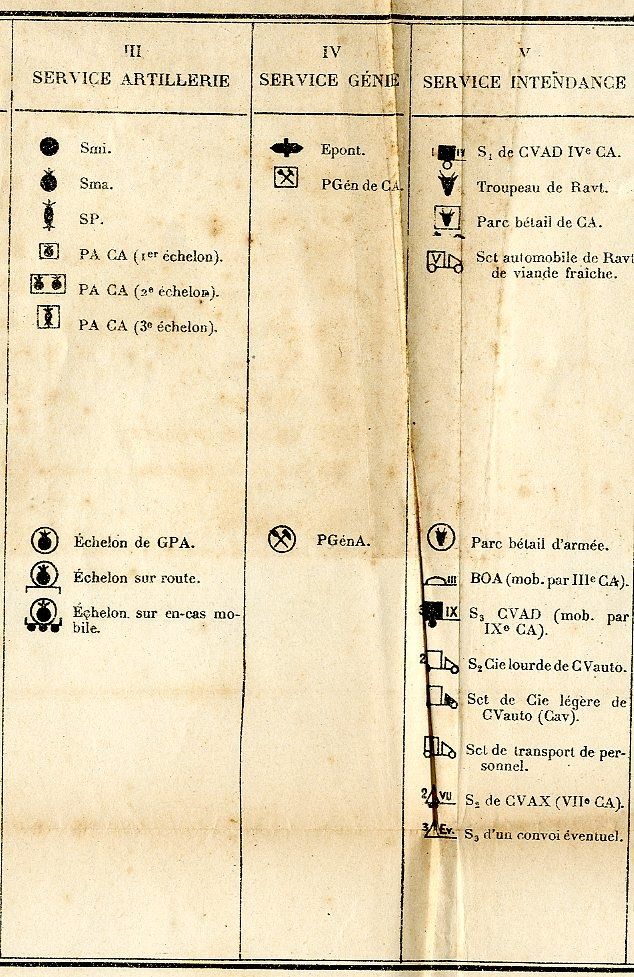 III
SERVICE ARTILLERIE
Smi.
Sma.
SP.
PA CA (1er échelon).
PA CA (2e échelon).
PA CA (3e échelon).
Échelon de GPA.
Échelon sur route.
Échelon sur en-cas mo-
bile.
IV
SERVICE GÉNIE
Epont.
PGén de CA.
PGénA.
V
SERVICE INTENDANCE
IV S1 de CVAD IVe CA.
Troupeau de Ravt.
Parc bétail de CA.
V Sct automobile de Ravt
de viande fraîche.
Parc bétail d'armée.
III BOA (mob. par IIIe CA).
3 IX S3 CVAD (mob. par
IXe CA).
2 S2 Cie lourde de CVauto.
Sct de Cie légère de
CVauto (Cav).
Sct de transport de per-
sonnel.
2 VII S2 de CVAX (VIIe CA).
3 Ev. S3 d'un convoi éventuel.